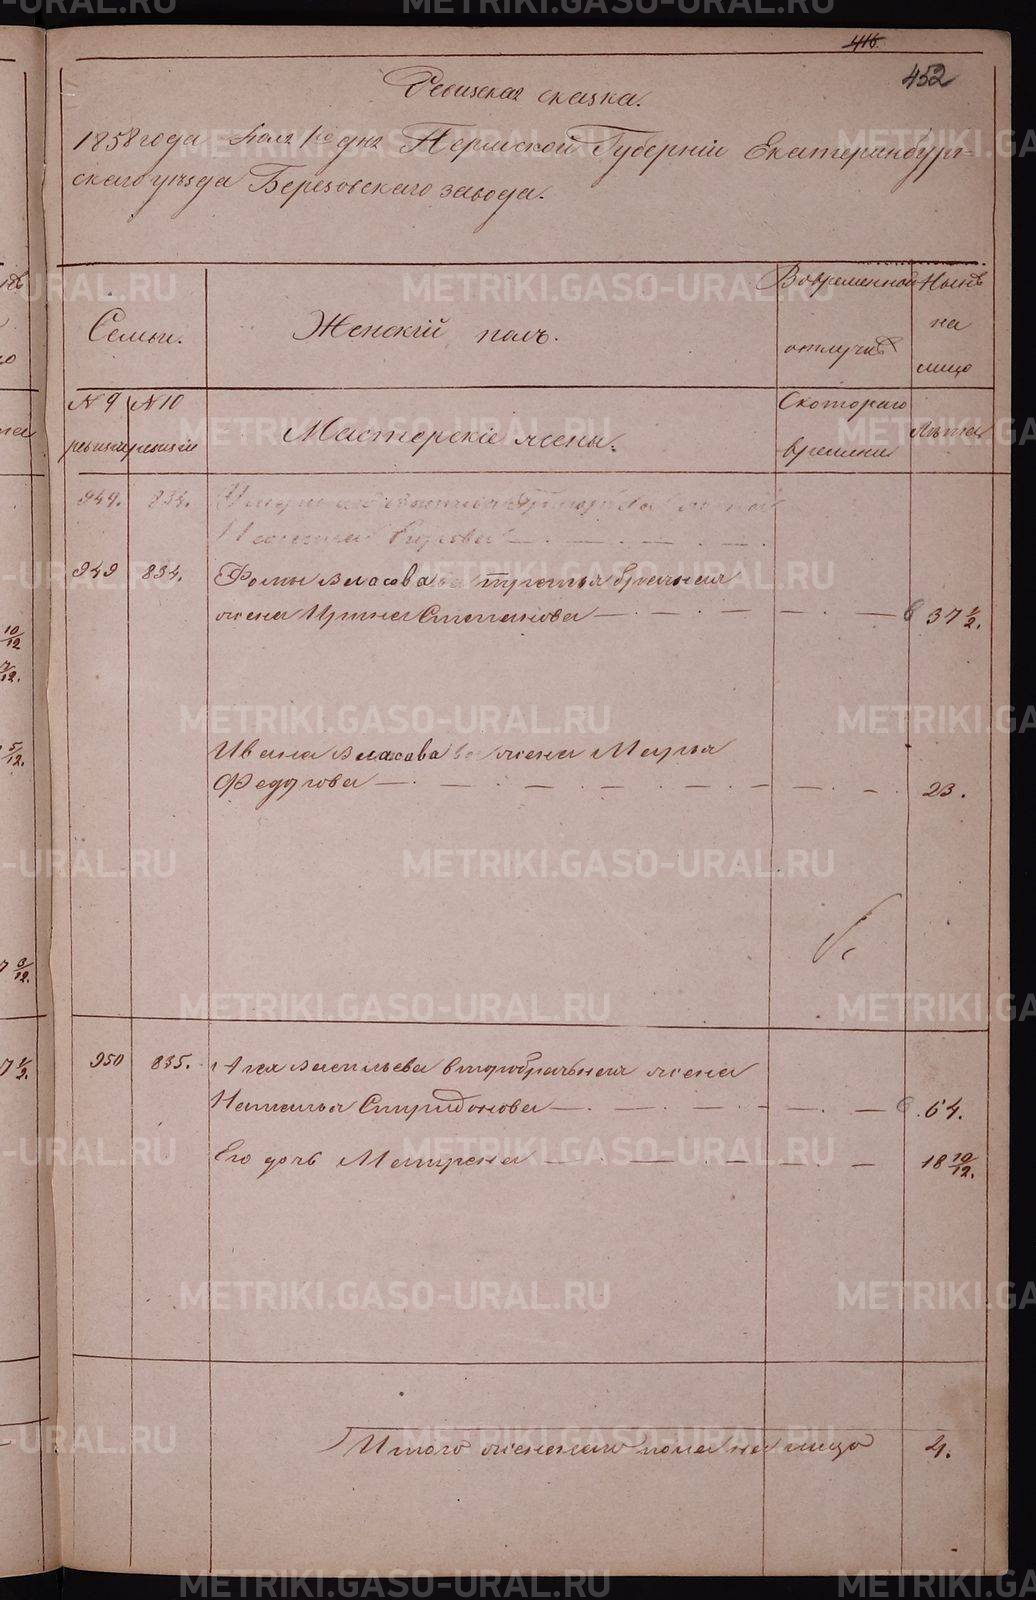 416.
452
Ревизская сказка.
1858 года Мая 1го дня Пермской Губернiи Екатеринбург-
скаго уѣзда Березовскаго завода.
Семьи.
Женскiй полъ.
Во временной
отлучкѣ
Нынѣ
на
лицо
N 9
ревизiи
N 10
ревизiи
Мастерскiе жены.
Скотораго
времени
Лѣта
949. 834.
949 834. Фомы Власова третья брачная
жена Ирина Степанова — 37 1/2.
Ивана Власова жена Марья
Федорова — 23.
950 835. Васильева второбрачная жена
Наталья Спиридонова — 64.
Его дочь Матрена — 18 10/12.
Итого женскаго пола на лицо 4.
10/12
5/12.
7 3/12.
7 1/2.
METRIKI.GASO-URAL.RU